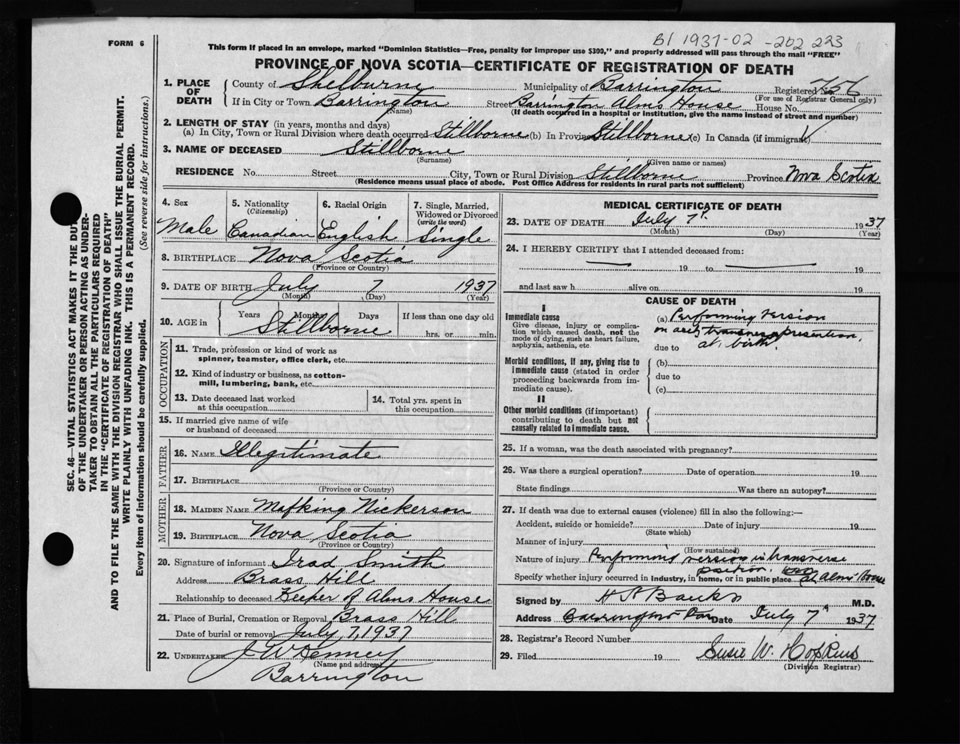 FORM 6
B1 1937-02-202 223
This form if placed in an envelope, marked "Dominion Statistics—Free, penalty for improper use $300," and properly addressed will pass through the mail "FREE"
PROVINCE OF NOVA SCOTIA—CERTIFICATE OF REGISTRATION OF DEATH
1. PLACE OF DEATH County of Shelburne Municipality of Barrington Registered No. 756
(For use of Registrar General only)
If in City or Town Barrington Street Barrington Alms House House No.
(Name) (If death occurred in a hospital or institution, give the name instead of street and number)
2. LENGTH OF STAY (in years, months and days)
(a) In City, Town or Rural Division where death occurred Stillborne (b) In Province Stillborne (c) In Canada (if immigrant)
3. NAME OF DECEASED Stillborne
(Surname) (Given name or names)
RESIDENCE No. Street City, Town or Rural Division Stillborne Province Nova Scotia
(Residence means usual place of abode. Post Office Address for residents in rural parts not sufficient)
4. Sex Male
5. Nationality (Citizenship) Canadian
6. Racial Origin English
7. Single, Married, Widowed or Divorced (write the word) Single
8. BIRTHPLACE Nova Scotia
(Province or Country)
9. DATE OF BIRTH July 7 1937
(Month) (Day) (Year)
10. AGE in Years Months Days If less than one day old
Stillborne hrs. or min.
OCCUPATION
11. Trade, profession or kind of work as spinner, teamster, office clerk, etc.
12. Kind of industry or business, as cotton-mill, lumbering, bank, etc.
13. Date deceased last worked at this occupation
14. Total yrs. spent in this occupation
15. If married give name of wife or husband of deceased
FATHER
16. NAME Illegitimate
17. BIRTHPLACE
(Province or Country)
MOTHER
18. MAIDEN NAME Mafking Nickerson
19. BIRTHPLACE Nova Scotia
(Province or Country)
20. Signature of informant Irad Smith
Address Brass Hill
Relationship to deceased Keeper of Alms House
21. Place of Burial, Cremation or Removal Brass Hill
Date of burial or removal July 7, 1937
22. UNDERTAKER J W Kenney
(Name and address)
Barrington
MEDICAL CERTIFICATE OF DEATH
23. DATE OF DEATH July 7th 1937
(Month) (Day) (Year)
24. I HEREBY CERTIFY that I attended deceased from:
19 to 19
and last saw h alive on 19
CAUSE OF DEATH
I
Immediate cause
Give disease, injury or complication which caused death, not the mode of dying, such as heart failure, asphyxia, asthenia, etc.
(a) Performing version
on transverse presention
due to at birth
Morbid conditions, if any, giving rise to immediate cause (stated in order proceeding backwards from immediate cause).
(b)
due to
(c)
II
Other morbid conditions (if important) contributing to death but not causally related to immediate cause.
25. If a woman, was the death associated with pregnancy?
26. Was there a surgical operation? Date of operation 19
State findings Was there an autopsy?
27. If death was due to external causes (violence) fill in also the following:—
Accident, suicide or homicide? Date of injury 19
(State which)
Manner of injury
(How sustained)
Nature of injury Performing version in transverse
position.
Specify whether injury occurred in industry, in home, or in public place at Alms House
Signed by H S Banks M.D.
Address Barrington Date July 7th 1937
28. Registrar's Record Number
29. Filed 19 Susie W. Hopkins
(Division Registrar)
SEC. 46—VITAL STATISTICS ACT MAKES IT THE DUTY
OF THE UNDERTAKER OR PERSON ACTING AS UNDER-
TAKER TO OBTAIN ALL THE PARTICULARS REQUIRED
IN THE "CERTIFICATE OF REGISTRATION OF DEATH"
AND TO FILE THE SAME WITH THE DIVISION REGISTRAR WHO SHALL ISSUE THE BURIAL PERMIT.
WRITE PLAINLY WITH UNFADING INK. THIS IS A PERMANENT RECORD.
Every item of information should be carefully supplied. (See reverse side for instructions.)